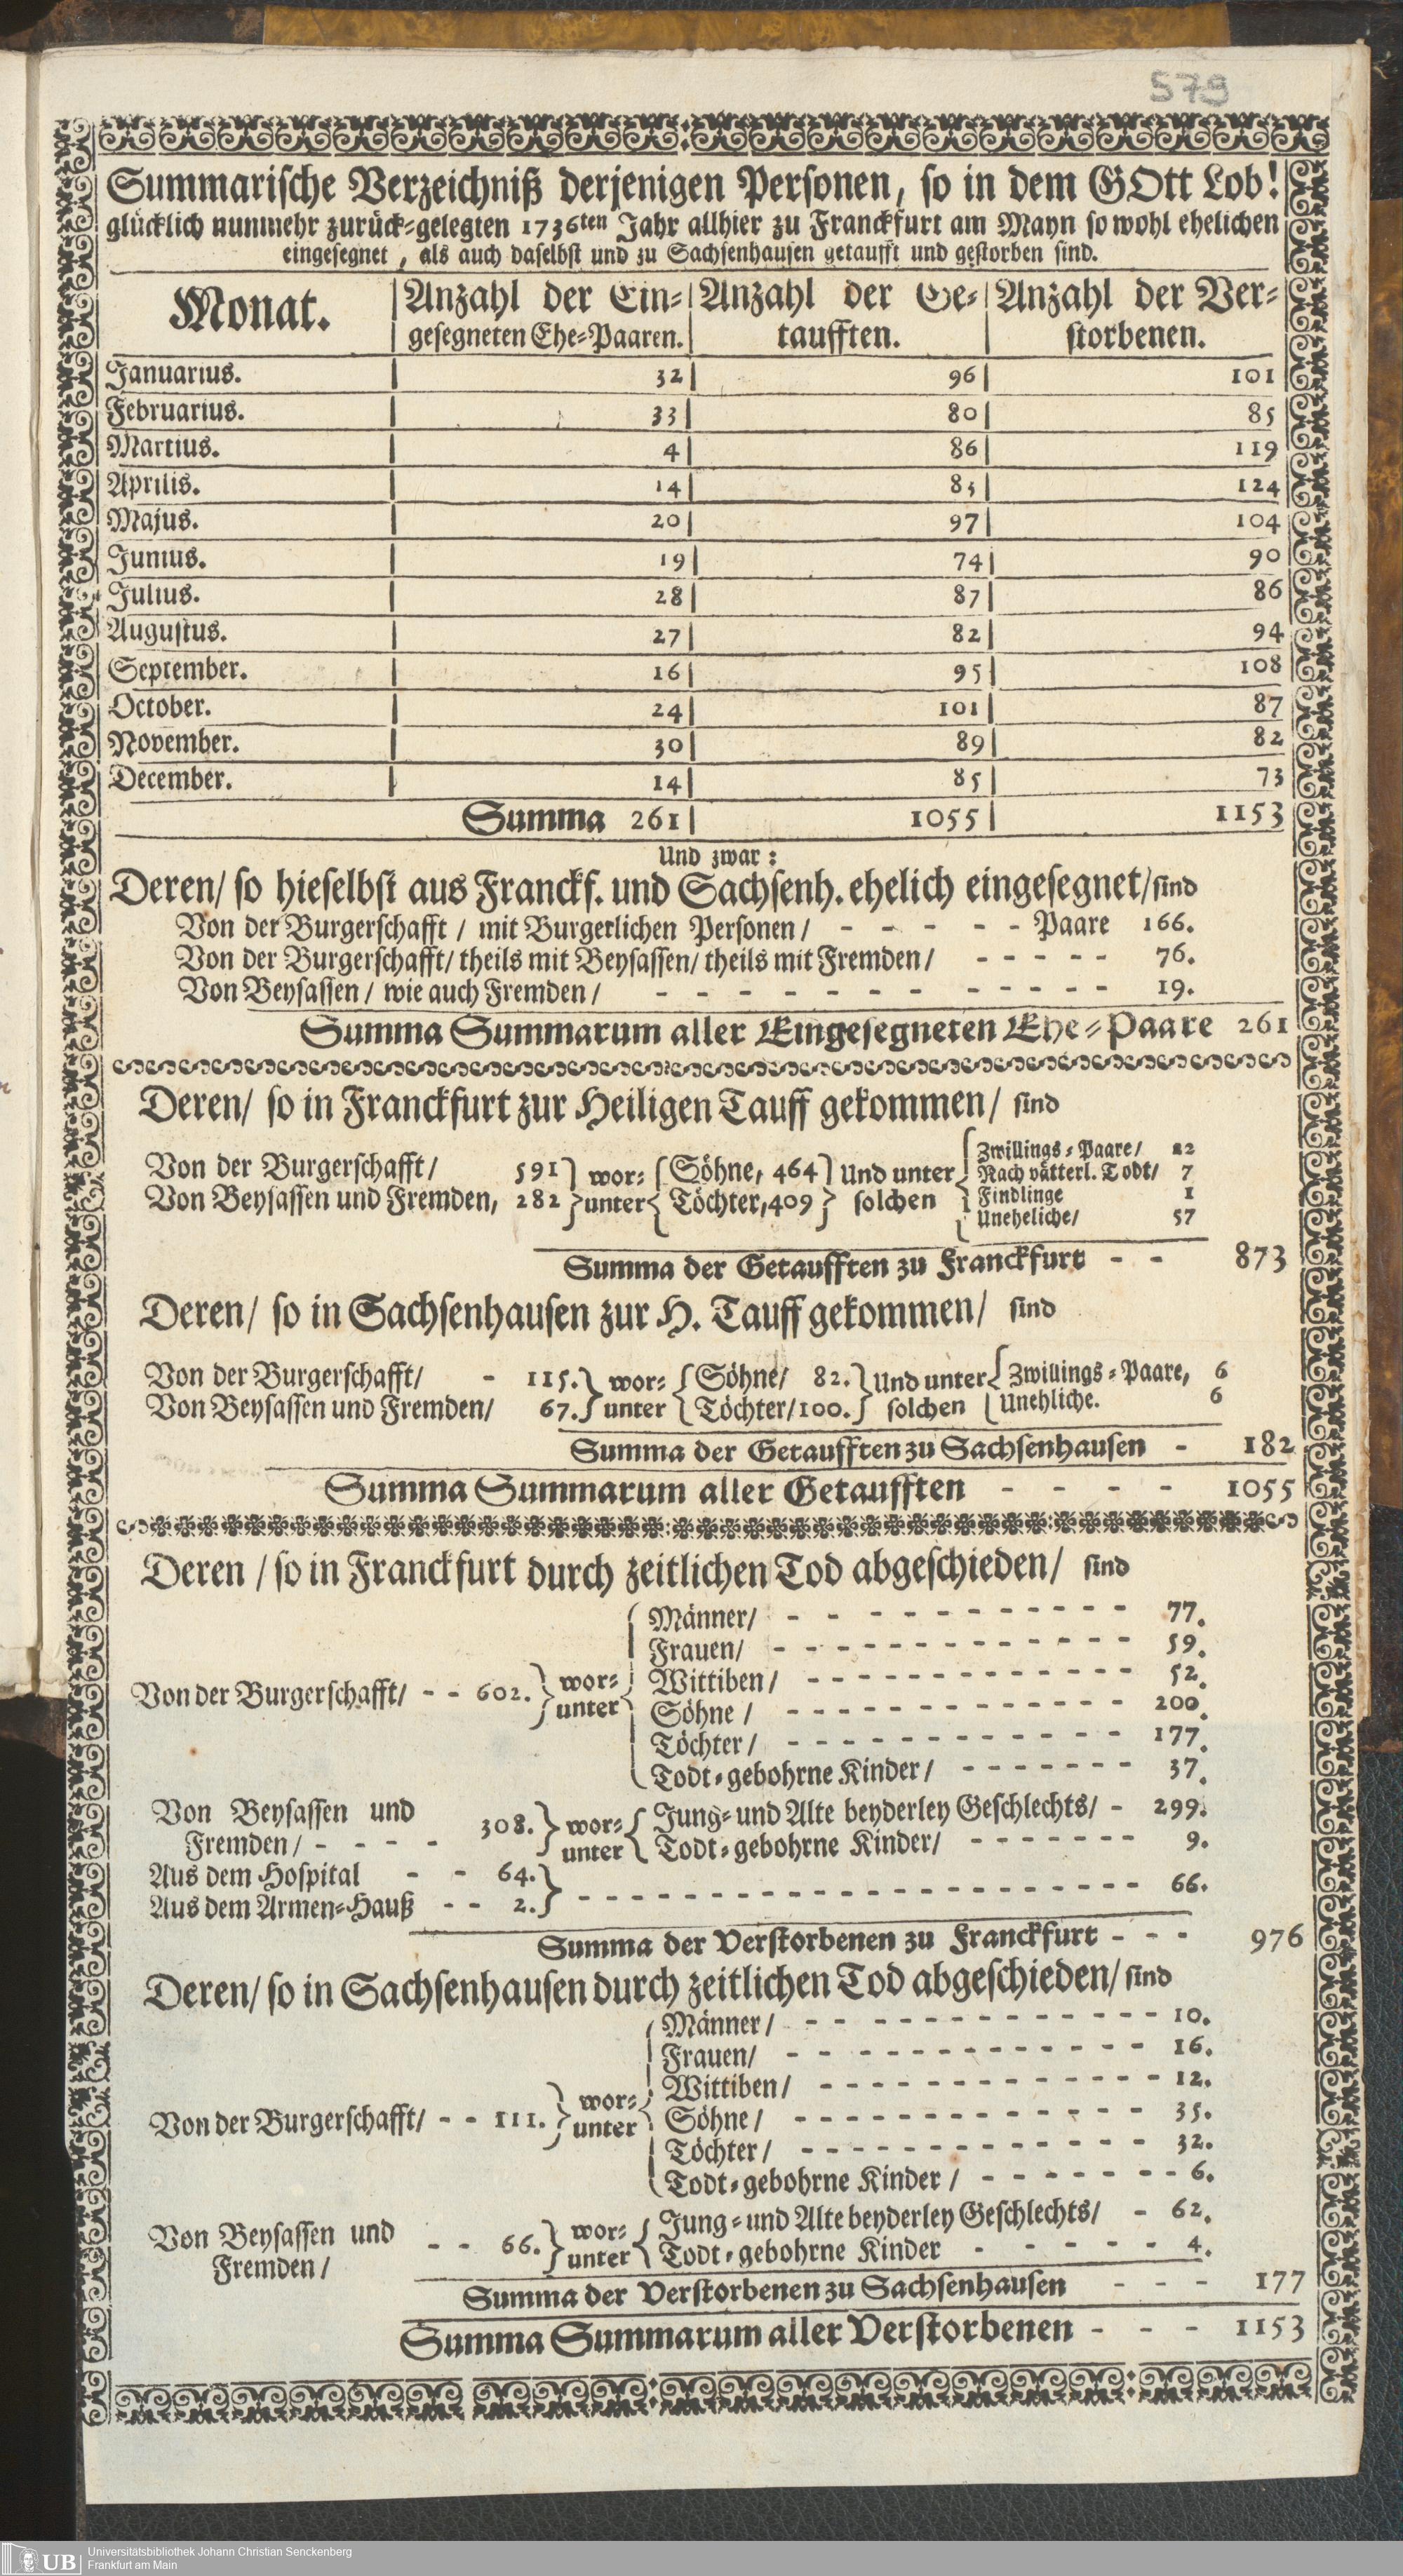 579
Summarische Verzeichniß derjenigen Personen, so in dem GOtt Lob!
glücklich nunmehr zurück-gelegten 1736ten Jahr allhier zu Franckfurt am Mayn so wohl ehelichen
eingesegnet, als auch daselbst und zu Sachsenhausen getaufft und gestorben sind.
Monat. Anzahl der Ein- Anzahl der Ge- Anzahl der Ver-
gesegneten Ehe-Paaren. taufften. storbenen.
Januarius. 32 96 101
Februarius. 33 80 85
Martius. 4 86 119
Aprilis. 14 83 124
Majus. 20 97 104
Junius. 19 74 90
Julius. 28 87 86
Augustus. 27 82 94
September. 16 95 108
October. 24 101 87
November. 30 89 82
December. 14 85 73
Summa 261 1055 1153
Und zwar:
Deren/ so hieselbst aus Franckf. und Sachsenh. ehelich eingesegnet/ sind
Von der Burgerschafft / mit Burgerlichen Personen / - - - - - Paare 166.
Von der Burgerschafft/ theils mit Beysassen/ theils mit Fremden/ - - - - - 76.
Von Beysassen / wie auch Fremden / - - - - - - - - - - - - 19.
Summa Summarum aller Eingesegneten Ehe-Paare 261
Deren/ so in Franckfurt zur Heiligen Tauff gekommen/ sind
Von der Burgerschafft/ 591 wor- Söhne, 464 Und unter Zwillings-Paare/ 12
Von Beysassen und Fremden, 282 unter Töchter, 409 solchen Nach vätterl. Todt/ 7
Findlinge 1
Uneheliche/ 57
Summa der Getaufften zu Franckfurt - - 873
Deren/ so in Sachsenhausen zur H. Tauff gekommen/ sind
Von der Burgerschafft/ - 115. wor- Söhne/ 82. Und unter Zwillings-Paare, 6
Von Beysassen und Fremden/ 67. unter Töchter/ 100. solchen Unehliche. 6
Summa der Getaufften zu Sachsenhausen - 182
Summa Summarum aller Getaufften - - - - 1055
Deren / so in Franckfurt durch zeitlichen Tod abgeschieden/ sind
Männer/ - - - - - - - - - - - 77.
Frauen/ - - - - - - - - - - - - 59.
Von der Burgerschafft/ - - 602. wor- Wittiben/ - - - - - - - - - - - 52.
unter Söhne / - - - - - - - - - - - 200.
Töchter/ - - - - - - - - - - - 177.
Todt-gebohrne Kinder/ - - - - - - - 37.
Von Beysassen und 308. wor- Jung- und Alte beyderley Geschlechts/ - 299.
Fremden/ - - - - unter Todt-gebohrne Kinder/ - - - - - - - 9.
Aus dem Hospital - - 64.
Aus dem Armen-Hauß - - 2. - - - - - - - - - - - - - - - - - - - - 66.
Summa der Verstorbenen zu Franckfurt - - - 976
Deren/ so in Sachsenhausen durch zeitlichen Tod abgeschieden/ sind
Männer/ - - - - - - - - - - - - 10.
Frauen/ - - - - - - - - - - - - 16.
Wittiben/ - - - - - - - - - - - - 12.
Von der Burgerschafft/ - - 111. wor- unter Söhne/ - - - - - - - - - - - - 35.
Töchter/ - - - - - - - - - - - - 32.
Todt-gebohrne Kinder / - - - - - - - - 6.
Von Beysassen und - - 66. wor- Jung- und Alte beyderley Geschlechts/ - 62.
Fremden/ unter Todt-gebohrne Kinder - - - - - - 4.
Summa der Verstorbenen zu Sachsenhausen - - - 177
Summa Summarum aller Verstorbenen - - - 1153
UB
Universitätsbibliothek Johann Christian Senckenberg
Frankfurt am Main